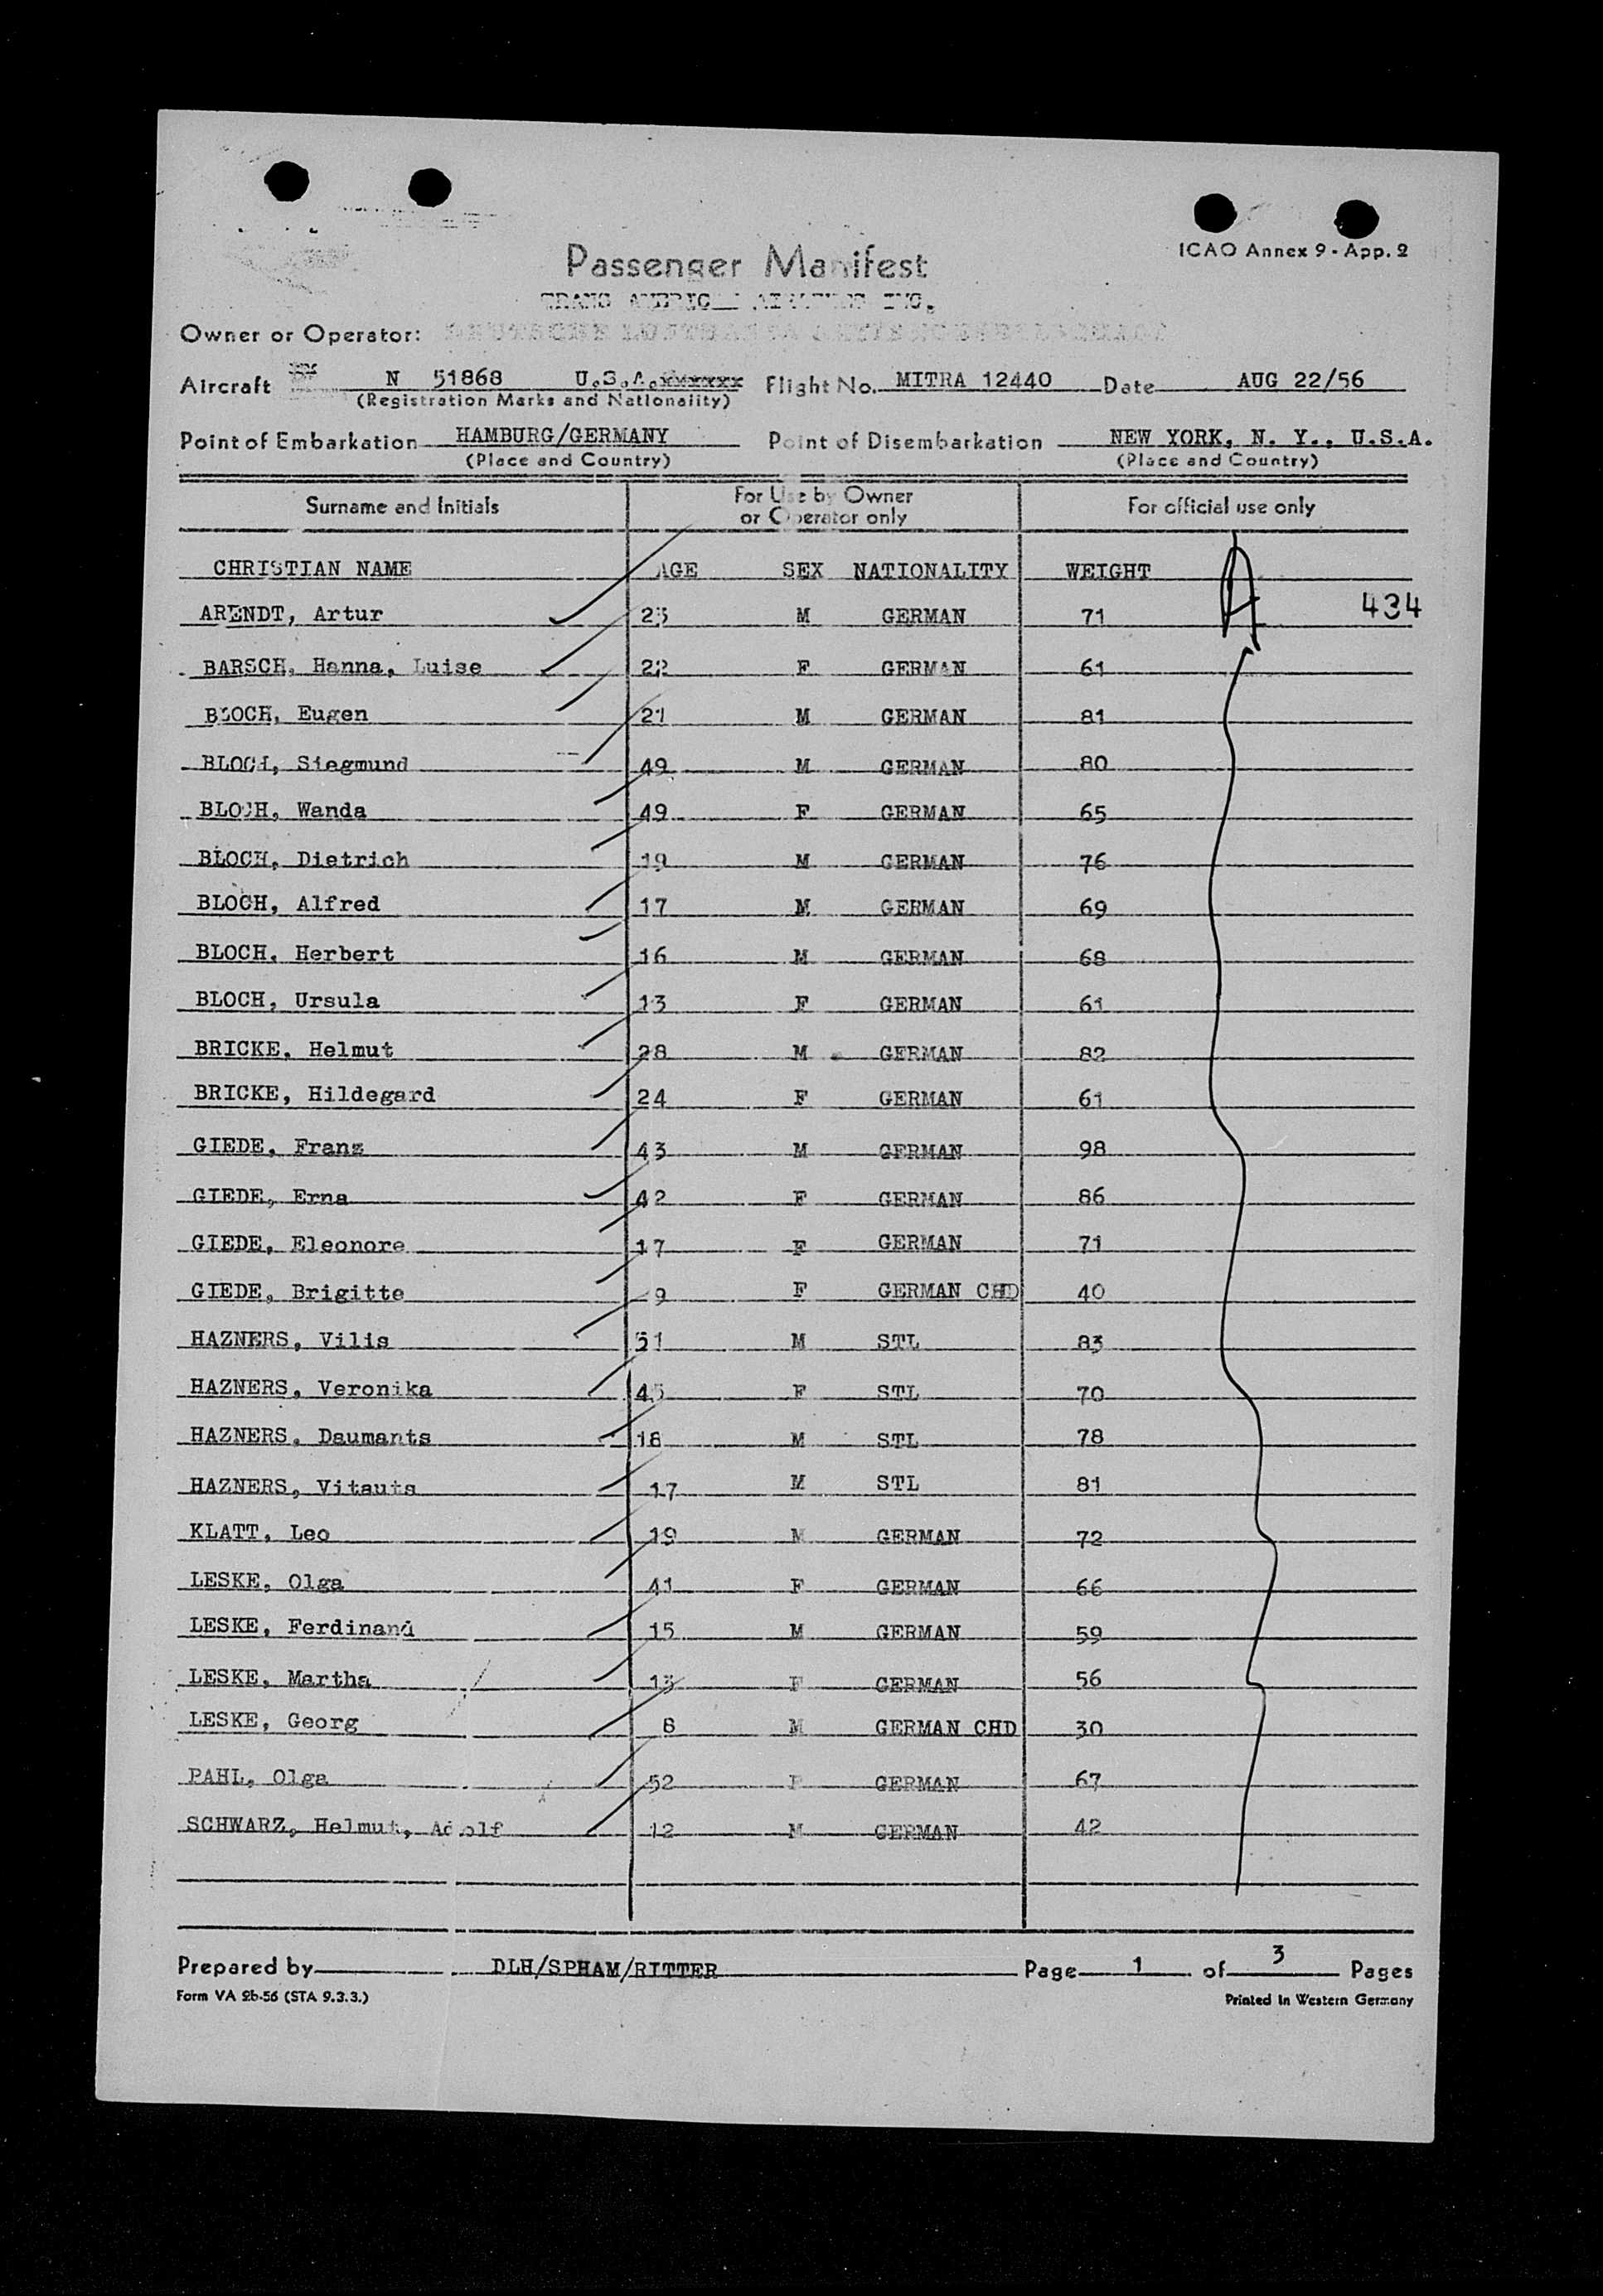 ICAO Annex 9 - App. 2
Passenger Manifest
TRANS AMERICAN AIRLINES INC.
Owner or Operator: DEUTSCHE LUFTHANSA AKTIENGESELLSCHAFT
Aircraft N 51868 U.S.A. Flight No. MITRA 12440 Date AUG 22/56
(Registration Marks and Nationality)
Point of Embarkation HAMBURG/GERMANY Point of Disembarkation NEW YORK, N. Y., U.S.A.
(Place and Country) (Place and Country)
Surname and Initials For Use by Owner or Operator only For official use only
CHRISTIAN NAME AGE SEX NATIONALITY WEIGHT A
ARENDT, Artur 23 M GERMAN 71 434
BARSCH, Hanna, Luise 22 F GERMAN 61
BLOCH, Eugen 21 M GERMAN 81
BLOCH, Siegmund 49 M GERMAN 80
BLOCH, Wanda 49 F GERMAN 65
BLOCH, Dietrich 19 M GERMAN 76
BLOCH, Alfred 17 M GERMAN 69
BLOCH, Herbert 16 M GERMAN 68
BLOCH, Ursula 13 F GERMAN 61
BRICKE, Helmut 28 M GERMAN 82
BRICKE, Hildegard 24 F GERMAN 61
GIEDE, Franz 43 M GERMAN 98
GIEDE, Erna 42 F GERMAN 86
GIEDE, Eleonore 17 F GERMAN 71
GIEDE, Brigitte 9 F GERMAN CHD 40
HAZNERS, Vilis 51 M STL 83
HAZNERS, Veronika 45 F STL 70
HAZNERS, Daumants 18 M STL 78
HAZNERS, Vitauts 17 M STL 81
KLATT, Leo 19 M GERMAN 72
LESKE, Olga 41 F GERMAN 66
LESKE, Ferdinand 15 M GERMAN 59
LESKE, Martha 13 F GERMAN 56
LESKE, Georg 8 M GERMAN CHD 30
PAHL, Olga 52 F GERMAN 67
SCHWARZ, Helmut, Adolf 12 M GERMAN 42
Prepared by DLH/SPHAM/RITTER Page 1 of 3 Pages
Form VA 2b-56 (STA 9.3.3.) Printed in Western Germany